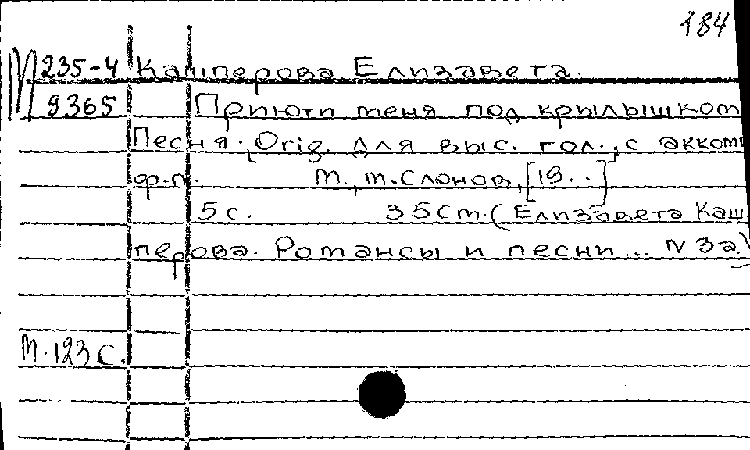 184
М 235-4 Кашперова Елизавета.
9365 Приюти меня под крылышком
Песня. [Orig. для выс. гол., с акком
ф-п. М., П. Слонов, [19..]
5 с. 35 cm. (Елизавета Каш
перова. Романсы и песни... N 3а)
М. 123 с.